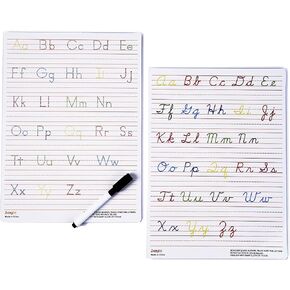 Aa Bb Cc Dd Ee
Ff Gg Hh Ii Jj
Kk Ll Mm Nn
Oo Pp Qq Rr Ss
Tt Uu Vv Ww
Xx Yy Zz
Aa Bb Cc Dd Ee
Ff Gg Hh Ii Jj
Kk Ll Mm Nn
Oo Pp Qq Rr Ss
Tt Uu Vv Ww
Xx Yy Zz